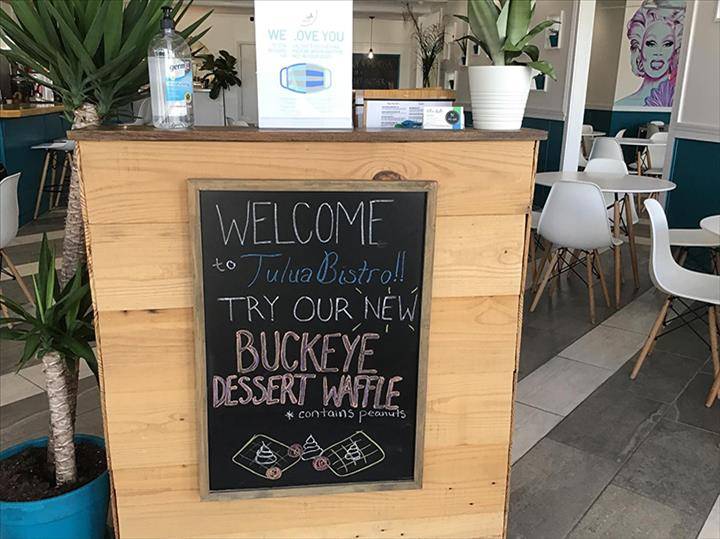 WE LOVE YOU
germ
WELCOME
to Tulua Bistro!!
TRY OUR NEW
BUCKEYE
DESSERT WAFFLE
* contains peanuts